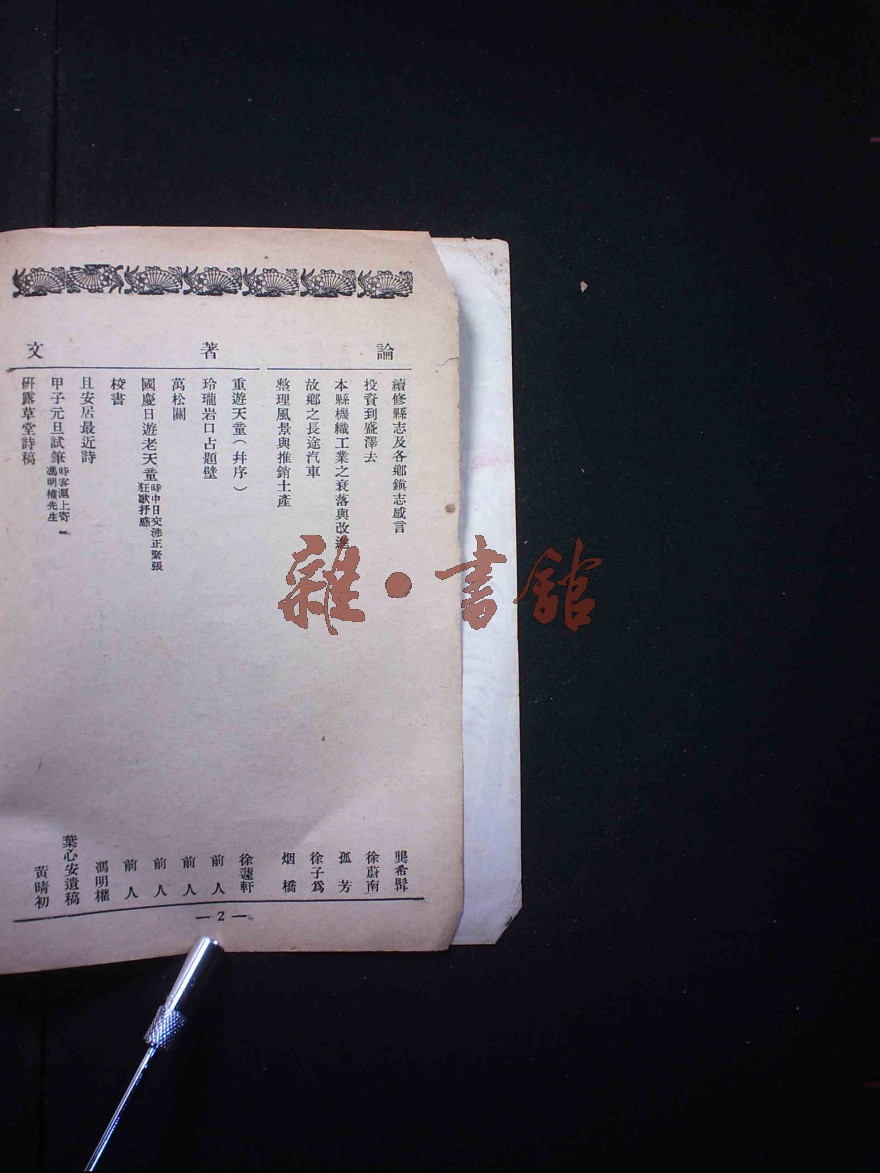 論
續修縣志及各鄉鎮志感言 龔希髯
投資到盛澤去 徐蔚南
本縣機織工業之衰落與改進 孤芳
故鄉之長途汽車 徐子爲
整理風景與推銷土產 烟橋
著
重遊天童(幷序) 徐蘧軒
玲瓏岩口占題壁 前人
萬松關 前人
國慶日遊老天童時中日交涉正緊張狂歌抒感 前人
校書 前人
且安居最近詩 馮明權
文
甲子元旦試筆時客滬上寄馮明權先生 葉心安遺稿
硏露草堂詩稿 黃晴初
—2—
雜·書館